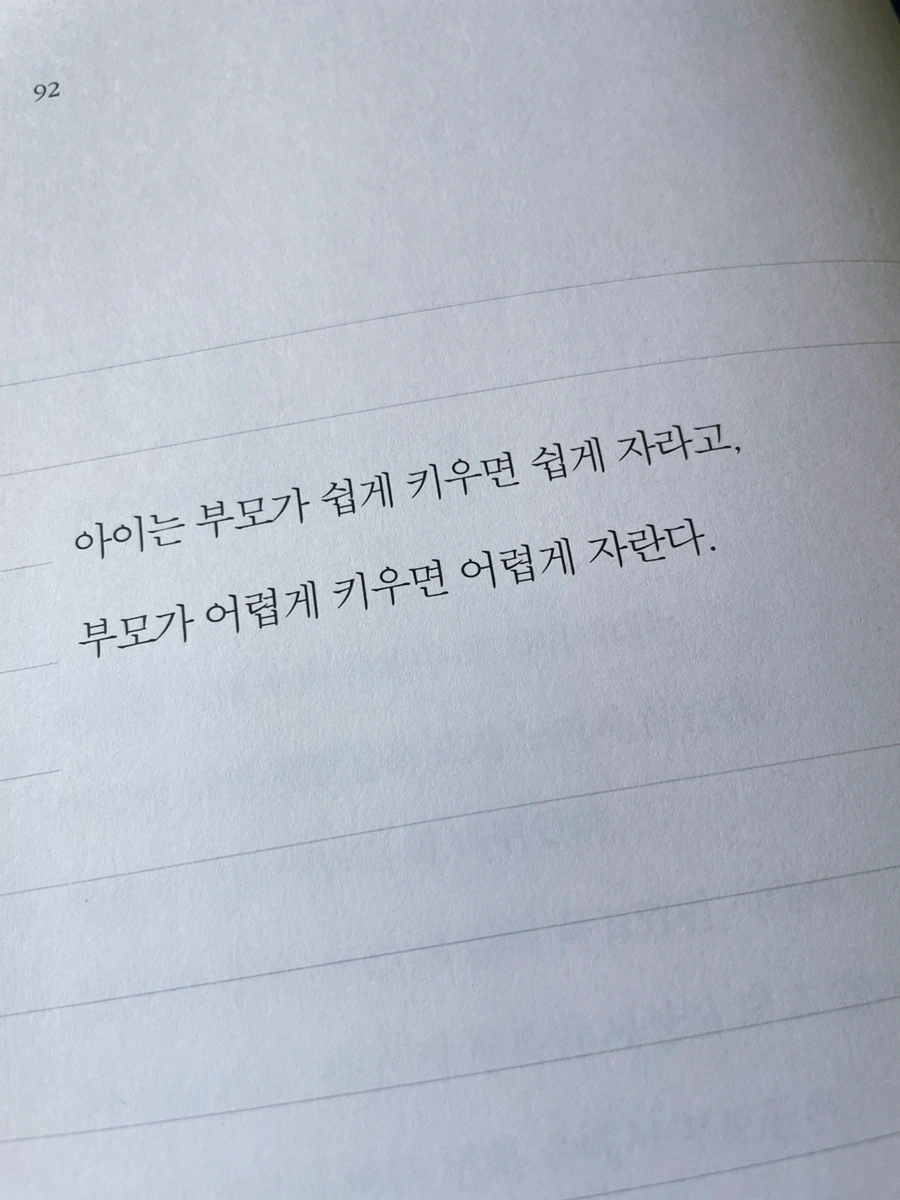 92
아이는 부모가 쉽게 키우면 쉽게 자라고,
부모가 어렵게 키우면 어렵게 자란다.